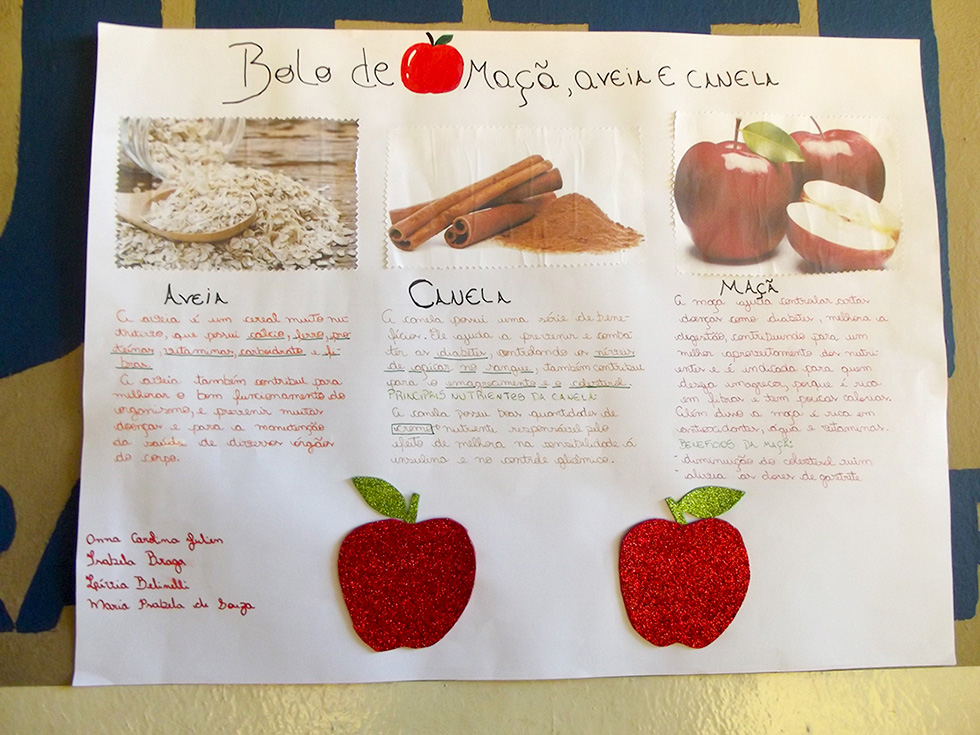 Bolo de Maçã, aveia e canela
Aveia
A aveia é um cereal muito nu-
tritivo, que possui cálcio, ferro, pro-
teínas, vitaminas, carboidrato e fi-
bras.
A aveia também contribui para
melhorar o bom funcionamento do
organismo, e prevenir muitas
doenças e para a manutenção
da saúde de diversos órgãos
do corpo.
Canela
A canela possui uma série de bene-
fícios. Ele ajuda a prevenir e comba-
ter as diabetes, controlando os níveis
de açúcar no sangue, também contribui
para o emagrecimento e o colesterol.
PRINCIPAIS NUTRIENTES DA CANELA:
A canela possui boas quantidades de
cromo nutriente responsável pelo
efeito de melhora na sensibilidade á
insulina e no controle glicêmico.
Maçã
A maça ajuda controlar certas
doenças como diabetes, melhora a
digestão, contribuindo para um
melhor aproveitamento dos nutri-
entes e é indicada para quem
deseja emagrecer, porque é rica
em fibras e tem poucas calorias.
Além disso a maçã é rica em
antioxidantes, água e vitaminas.
BENEFÍCIOS DA MAÇÃ:
- diminuição do colesterol ruim
- alivia as dores de gastrite
Anna Carolina
Isabela Braga
Belinelli
Maria Isabela de Souza